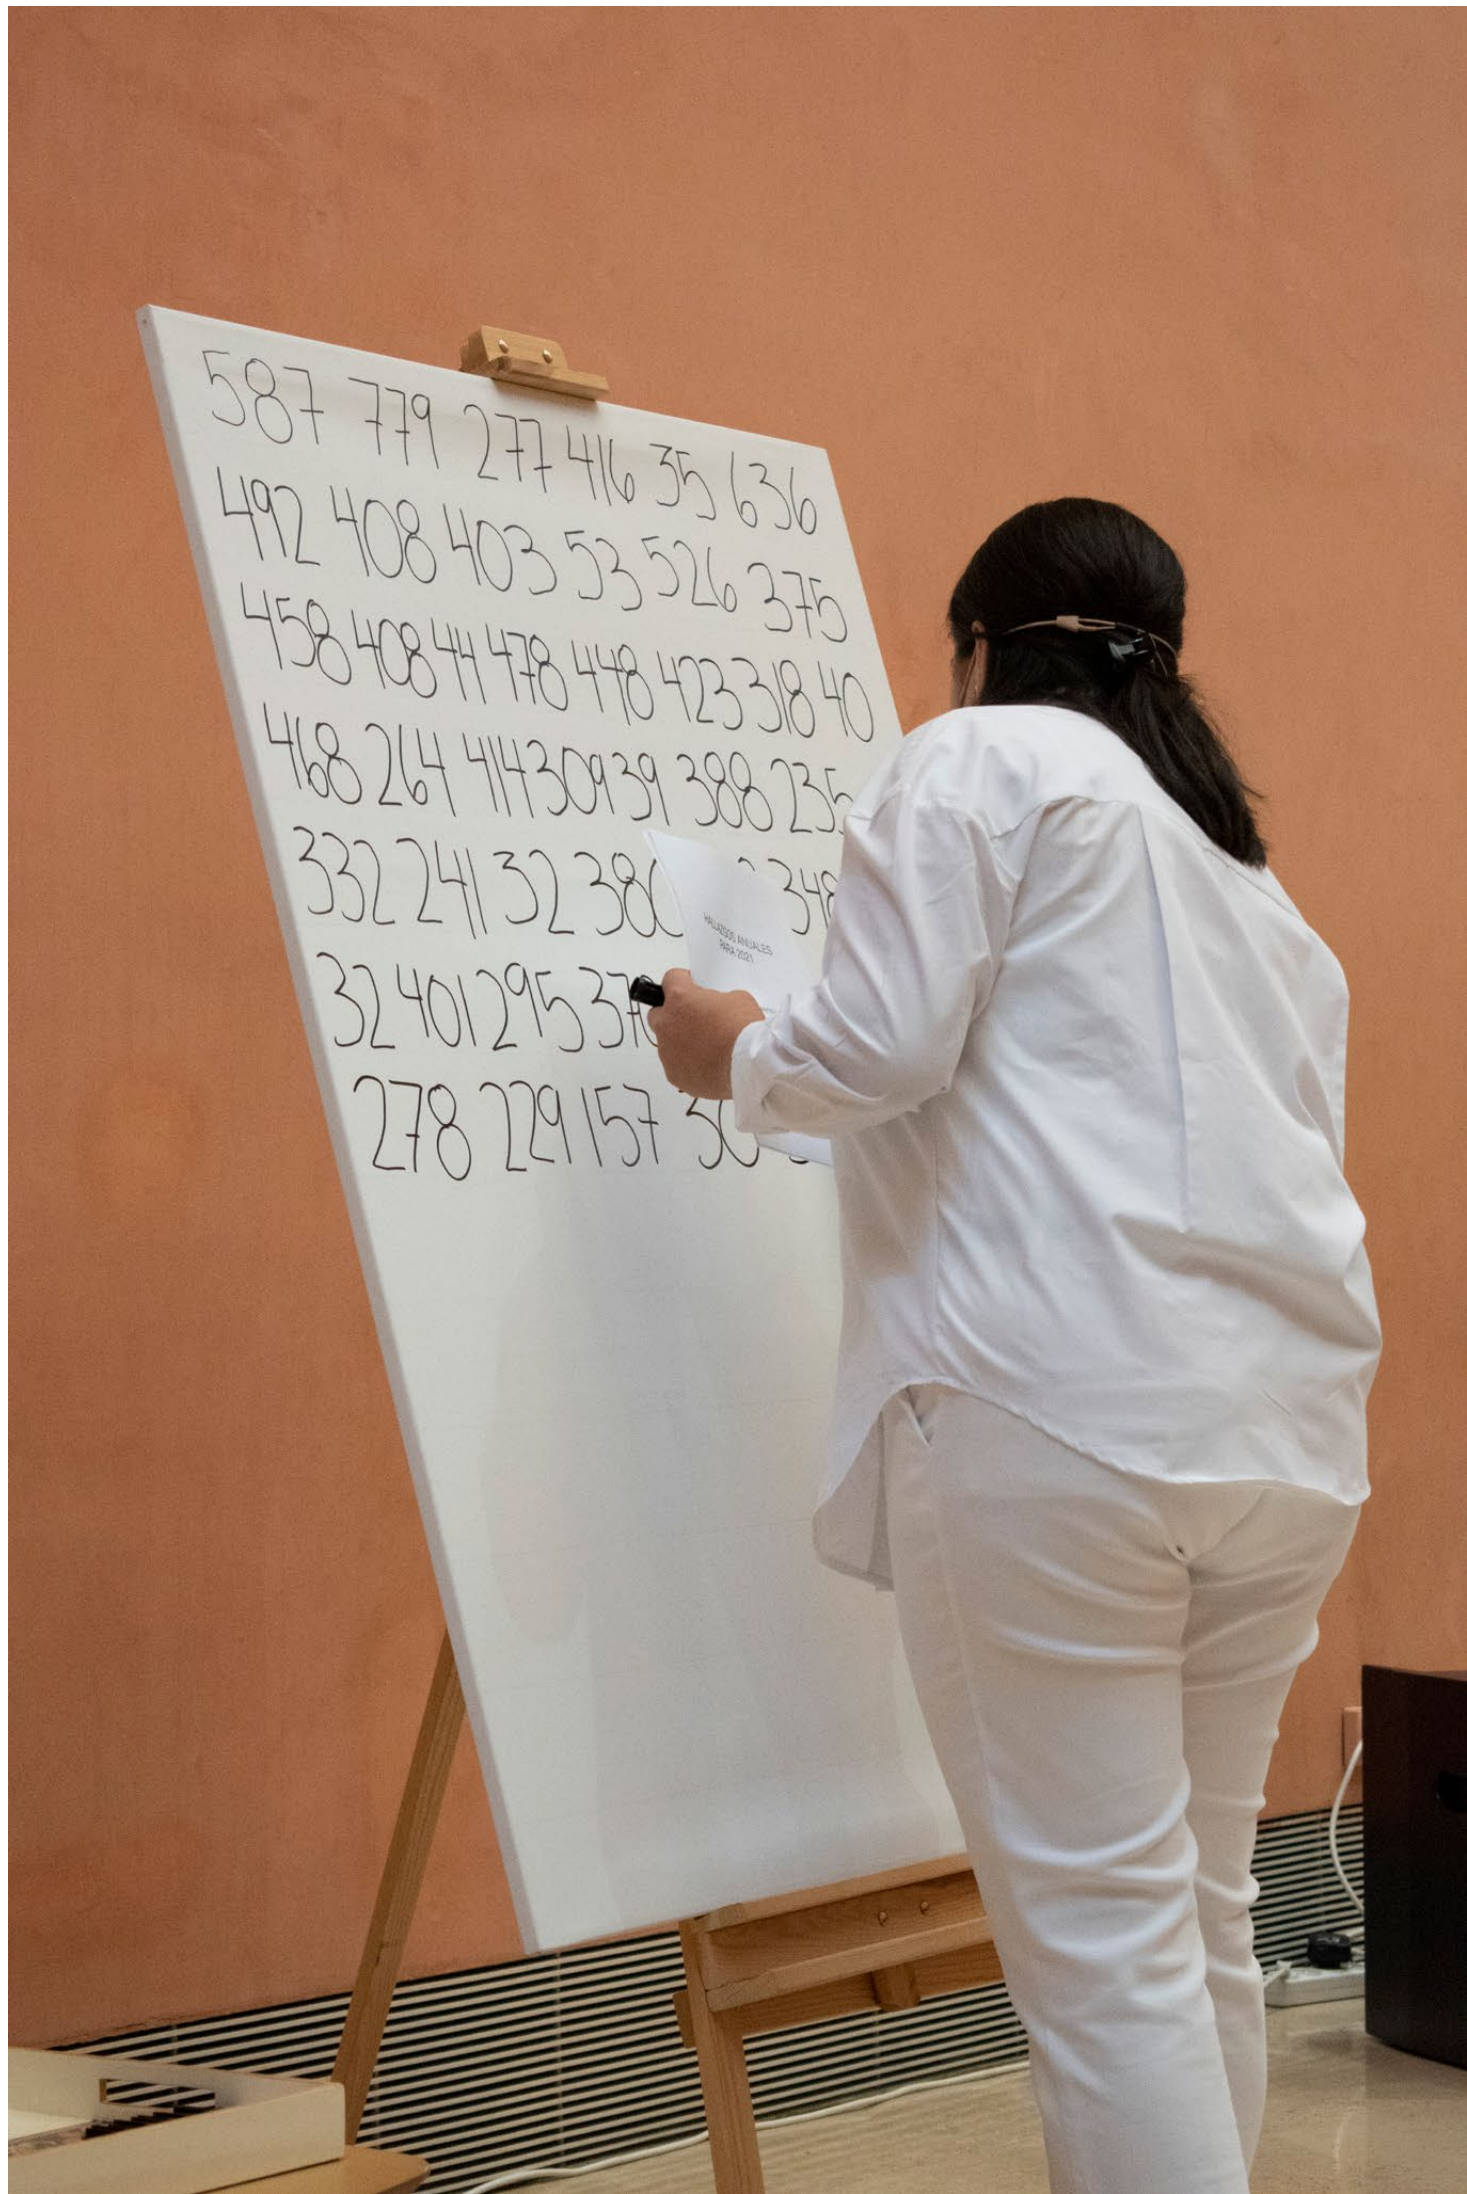 587 779 277 416 35 636
492 408 403 53 526 375
458 408 44 478 448 423 318 40
468 264 414 309 39 388 235
332 241 32 348
32 401 295
278 229 157
HALLAZGOS ANUALES
PARA 2021